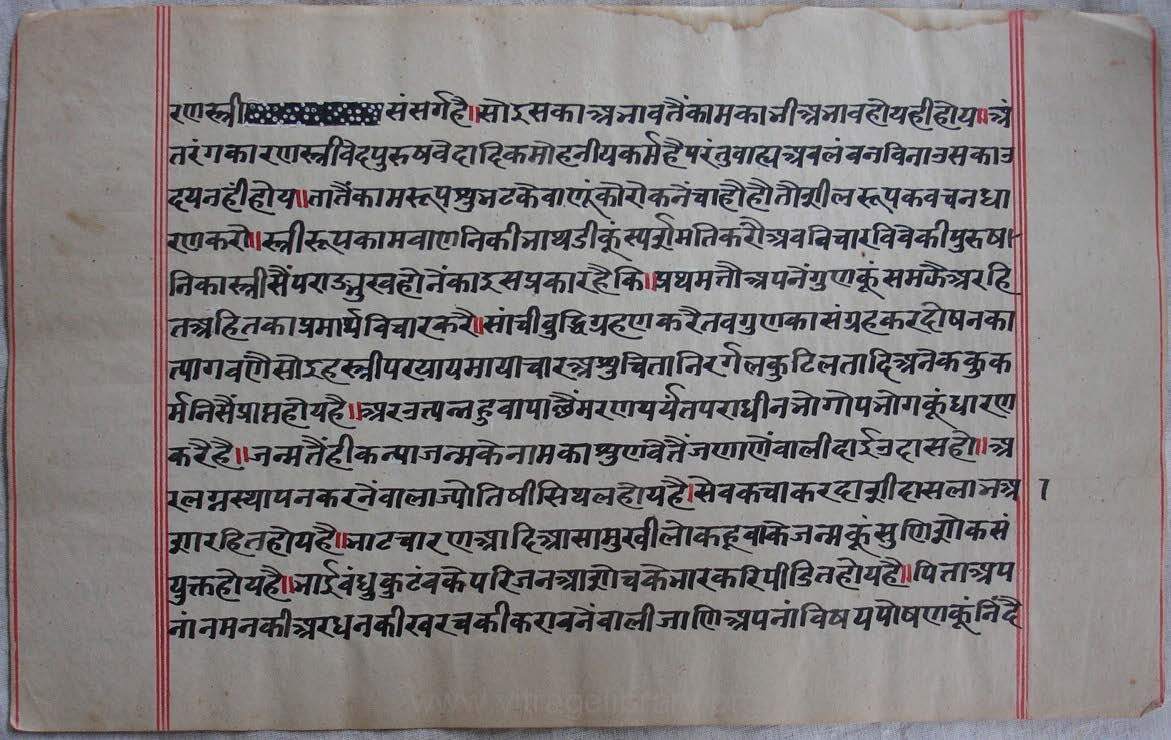 रणस्त्री संसर्गहै॥सोऽसकाअभावतैंकामकाभीअभावहोयहीहोय॥अं
तरंगकारणस्त्रीवेदपुरुषवेदादिकमोहनीयकर्महैपरंतुवाह्यअवलंवनविनाउसकाउ
दयनहीहोय॥तातैंकामरूपशुभटकेवाणूंकोरोकनेंचाहौहौतौशीलरूपकवचनधा
रणकरो॥स्त्रीरूपकामवाणनिकीभाथडीकूंस्पर्शमतिकरौअवविचारविवेकीपुरुषा
निकास्त्रीसैंपराङ्मुखहोनेंकाऽसप्रकारहैकि॥प्रथमतौअपनेंगुणकूंसमझैअरहि
तअहितकाप्रमार्थविचारकरै॥सांचीवुद्धिग्रहणकरैतवगुणकासंग्रहकरदोषनका
त्यागवणैसोऽहस्त्रीपरयायमायाचारअशुचितानिरर्गलकुटिलतादिअनेककुक
र्मनिसैंप्राप्तहोयहै॥अरउत्पन्नहुवापाछैंमरणपर्यंतपराधीनभोगोपभोगकूंधारण
करैहै॥जन्मतैंहीकन्याजन्मकेनामकाशुणवेतैंजणाणेंवालीदाईउदासहो॥अ
रलग्नस्थापनकरनेंवालाज्योतिषीसिथलहोयहै।सेवकचाकरदाशीदासलाभअ १
शारहितहोयहै॥भाटचारणआदिआसामुखीलोकहूवाकेजन्मकूंसुणिशोकसं
युक्तहोयहै॥भाईवंधुकुटंवकेपरिजनआशोचकेभारकरिपीडितहोयहै॥पिताअप
नांनमनकीअरधनकीखरचकीकरावनेंवालीजाणिअपनांविषयपोषणकूंनिंदै